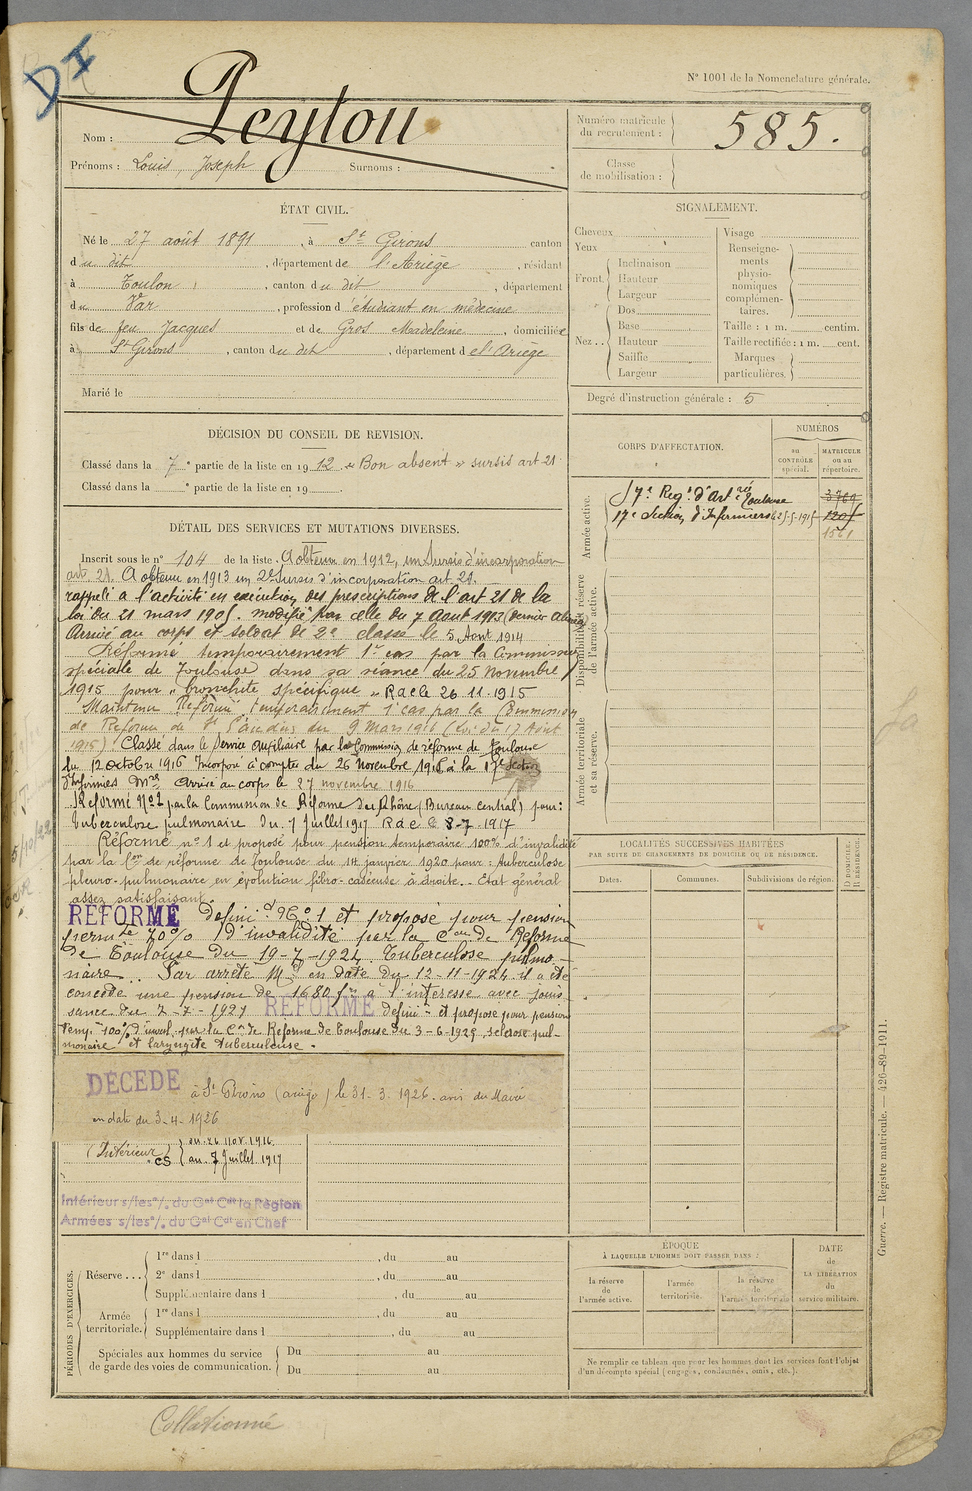 DI
N° 1001 de la Nomenclature générale.
Nom : Peytou
Prénoms : Louis, Joseph Surnoms :
Numéro matricule du recrutement : 585.
Classe de mobilisation :
ÉTAT CIVIL.
Né le 27 août 1891, à St Girons canton
du dit, département de l'Ariège, résidant
à Toulon, canton du dit, département
du Var, profession d'étudiant en médecine
fils de feu Jacques et de Gros Madeleine, domiciliée
à St Girons, canton du dit, département de l'Ariège
Marié le
SIGNALEMENT.
Cheveux
Yeux
Front. Inclinaison
Hauteur
Largeur
Nez.. Dos
Base
Hauteur
Saillie
Largeur
Visage
Renseignements physionomiques complémentaires.
Taille : 1 m. centim.
Taille rectifiée : 1 m. cent.
Marques particulières.
Degré d'instruction générale : 5
DÉCISION DU CONSEIL DE REVISION.
Classé dans la 7e partie de la liste en 1912 « Bon absent » sursis art 21
Classé dans la e partie de la liste en 19
DÉTAIL DES SERVICES ET MUTATIONS DIVERSES.
Inscrit sous le n° 104 de la liste. A obtenu en 1912, un Sursis d'incorporation
art. 21. A obtenu en 1913 un 2e Sursis d'incorporation art. 21.
rappelé à l'activité en exécution des prescriptions de l'art 21 de la
loi du 21 mars 1905. modifié par celle du 7 Aout 1913 (dernier alinéa)
Arrivé au corps et soldat de 2e classe le 5 Aout 1914
Réformé temporairement 1er cas par la Commission
spéciale de Toulouse dans sa séance du 25 Novembre
1915 pour « bronchite spécifique » R a c le 26-11-1915
Maintenu Réformé temporairement 1er cas par la Commission
de Réforme de St Gaudens du 9 Mars 1916 (Loi du 17 Août
1915) Classé dans le Service Auxiliaire par la Commission de réforme de Toulouse
du 12 Octobre 1916 Incorporé à compter du 26 Novembre 1916 à la 17e Section
d'Infirmiers Mres Arrivé au corps le 27 novembre 1916
Réformé N°1 par la Commission de Réforme du Rhône (Bureau central) pour:
tuberculose pulmonaire du 7 Juillet 1917 R d c le 8-7-1917
Réformé n° 1 et proposé pour pension temporaire 100% d'invalidité
par la Con de réforme de Toulouse du 14 janvier 1920 pour : tuberculose
pleuro-pulmonaire en évolution fibro-caséeuse à droite. - Etat général
assez satisfaisant
REFORMÉ défini.t N° 1 et proposé pour pension
permte 70% d'invalidité par la Con de Réforme
de Toulouse du 19-7-1924. Tuberculose pulmo-
naire. Par arrêté Mel en date du 12-11-1924 il a été
concédé une pension de 1680 frs à l'intéressé avec jouis
sance du 7-7-1921 REFORMÉ défini - et proposé pour pension
Temp. 100% d'inval. par la Con de Réforme de Toulouse du 3-6-1925, sclérose pul-
monaire et laryngite tuberculeuse.
DÉCÉDÉ à St Girons (ariège) le 31-3-1926. avis du Maire
en date du 3-4-1926
Intérieur du 26 nov. 1916.
CS au 7 Juillet 1917
Intérieur s/les o/. du Gal Cdt la Région
Armées s/les o/. du Gal Cdt en Chef
CORPS D'AFFECTATION.
NUMÉROS
au CONTRÔLE spécial.
MATRICULE ou au répertoire.
Armée active.
57e Regt d'Artrie Toulouse 3769
17e Section d'Infirmiers 1205
1561
Disponibilité et réserve de l'armée active.
Armée territoriale et sa réserve.
LOCALITÉS SUCCESSIVES HABITÉES
PAR SUITE DE CHANGEMENTS DE DOMICILE OU DE RÉSIDENCE.
Dates.
Communes.
Subdivisions de région.
D. DOMICILE. R. RÉSIDENCE.
PÉRIODES D'EXERCICES.
Réserve... 1re dans l , du au
2e dans l , du au
Supplémentaire dans l , du au
Armée territoriale. 1re dans l , du au
Supplémentaire dans l , du au
Spéciales aux hommes du service de garde des voies de communication. Du au
Du au
ÉPOQUE
À LAQUELLE L'HOMME DOIT PASSER DANS :
la réserve de l'armée active.
l'armée territoriale.
la réserve de l'armée territoriale
DATE de LA LIBÉRATION du service militaire.
Ne remplir ce tableau que pour les hommes dont les services font l'objet
d'un décompte spécial (engagés, condamnés, omis, etc.).
Guerre. — Registre matricule. — 426-89-1911.
Collationné